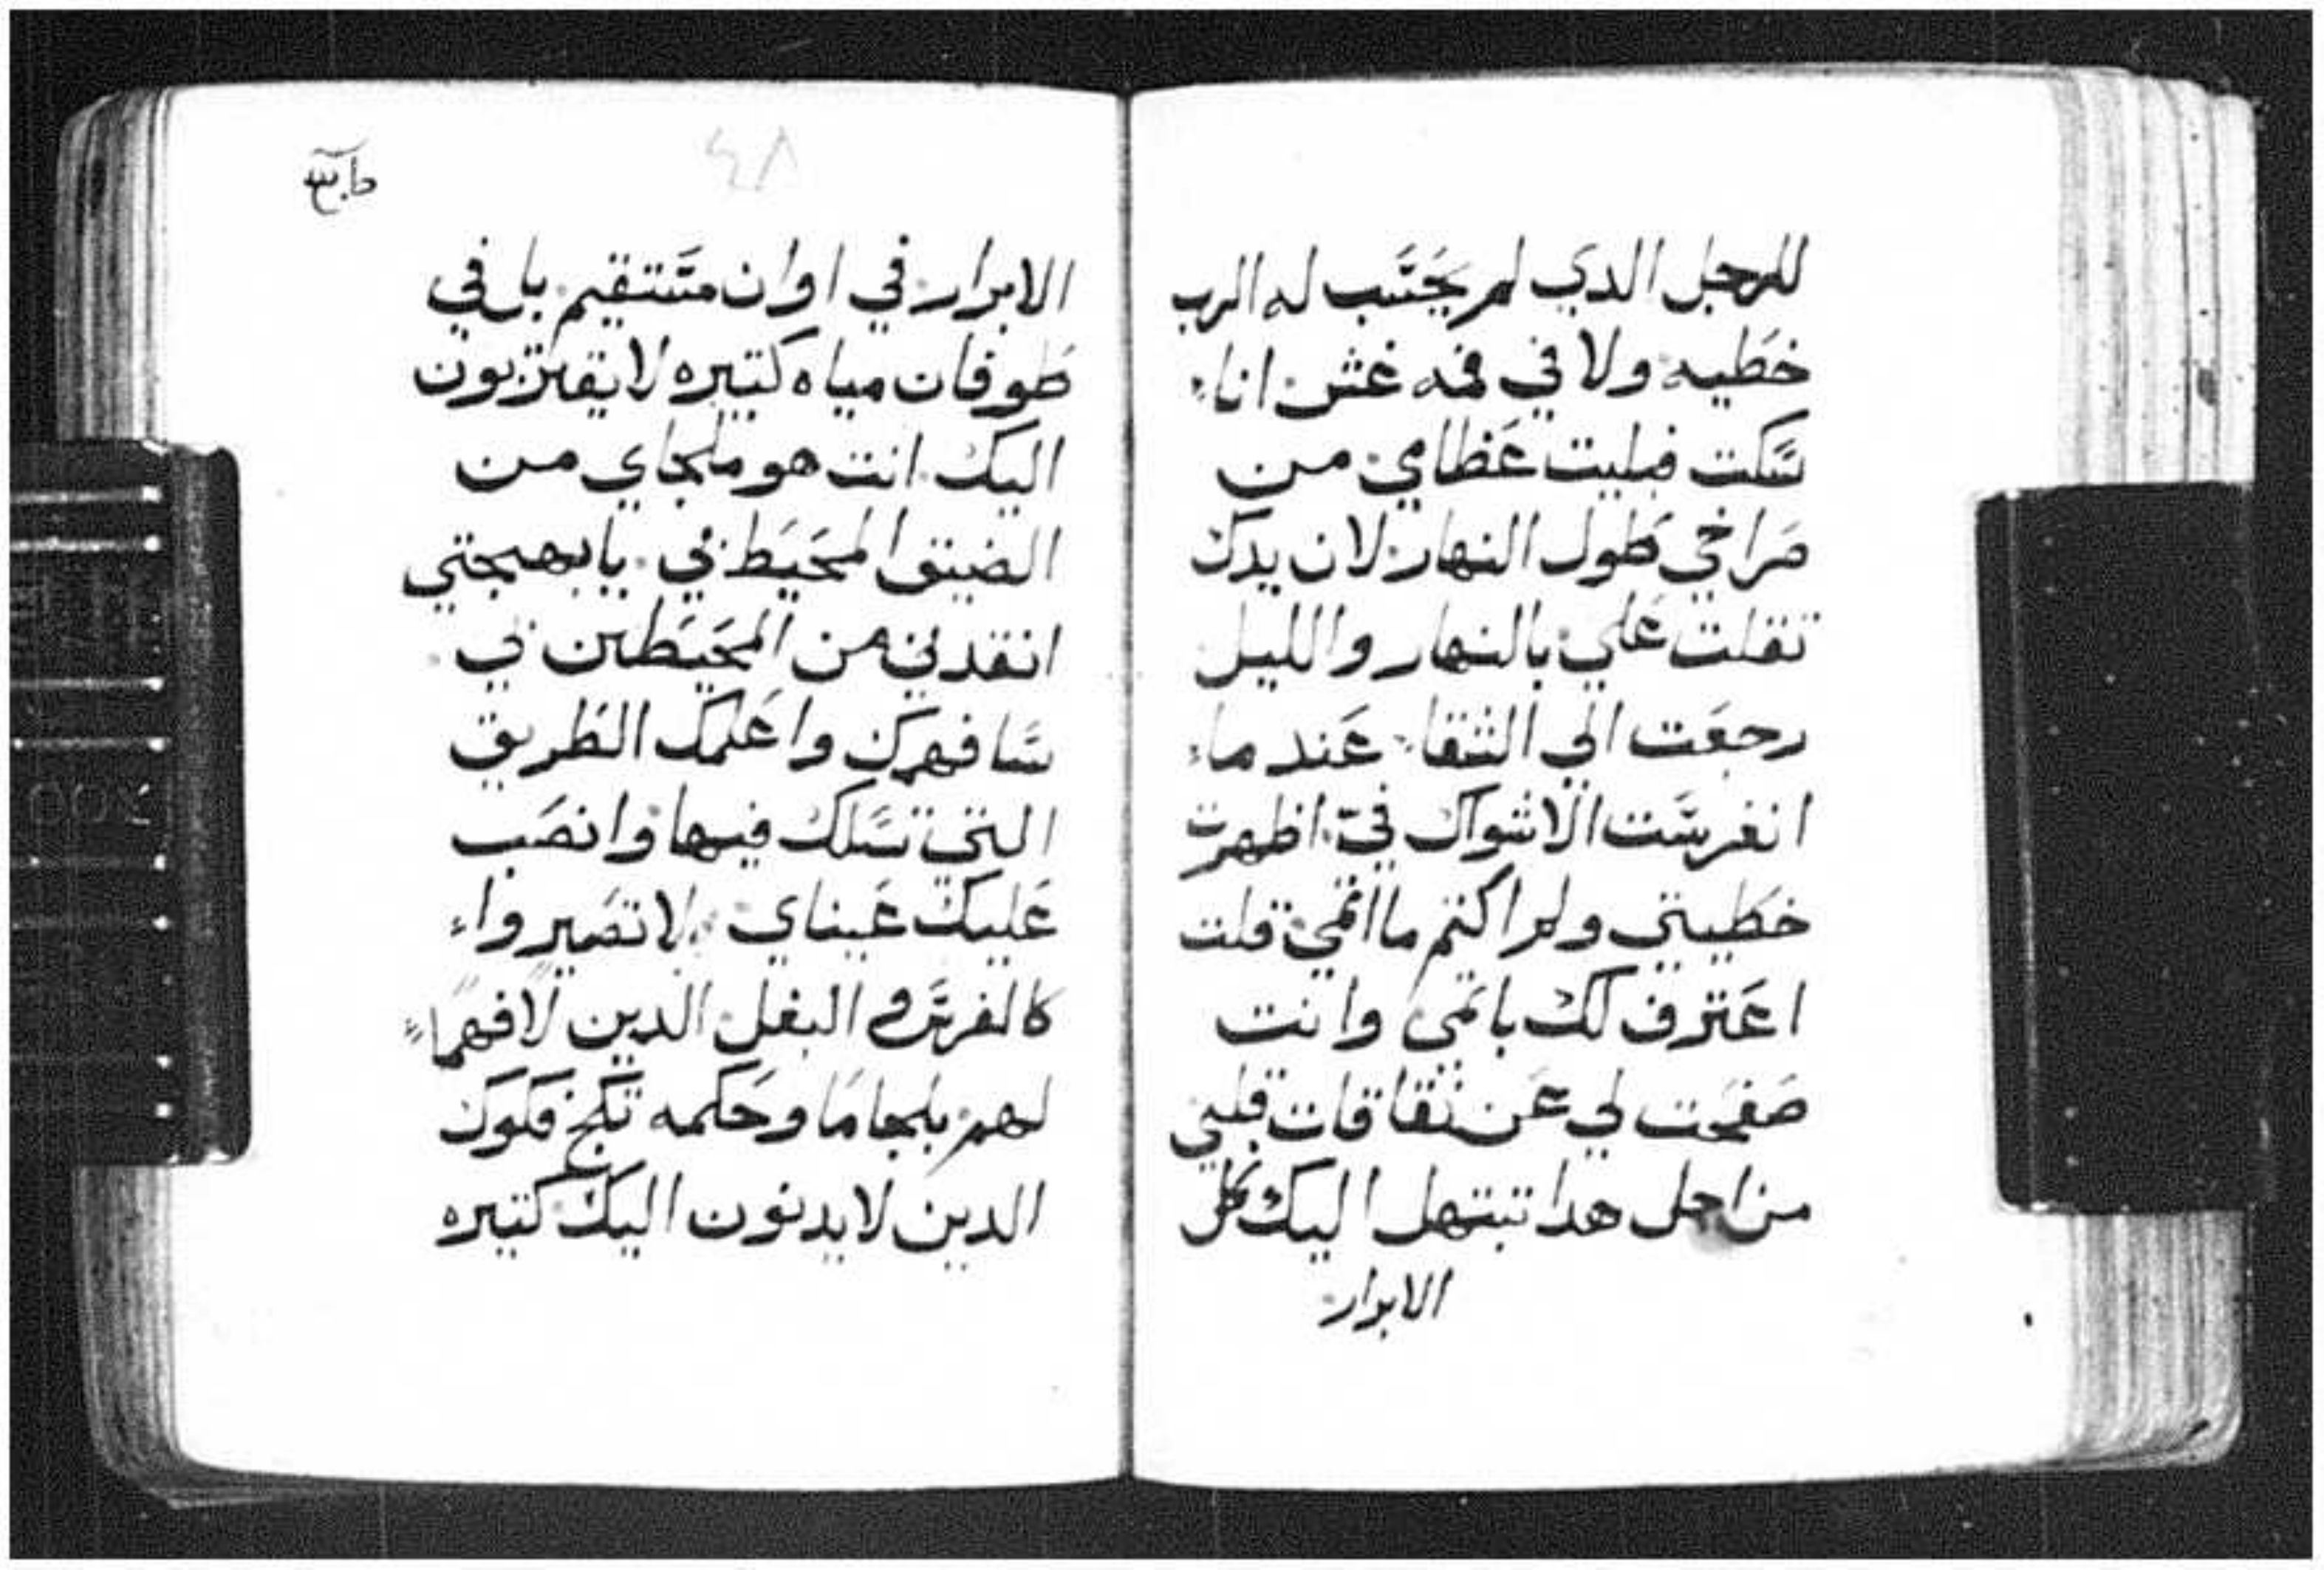 للرجل الدي لم يحسب له الرب
خطيه ولا في فمه غش انا
سكت فبليت عظامي من
صراخي طول النهار لان يدك
تقلت علي بالنهار والليل
رجعت الي الشقا عند ما
انغرست الاشواك في اظهرت
خطيتي ولم اكتم ما اتمي قلت
اعترف لك باتمي وانت
صفحت لي عن نفاقات قلبي
من اجل هدا تبتهل اليك كل
الابرار
٤٨
الابرار في اوان مستقيم بل في
طوفان مياه كتيره لا يقتربون
اليك انت هو ملجاي من
الضيق المحيط بي يا بهجتي
انقدني من المحيطين بي
سافهمك واعلمك الطريق
التي تسلك فيها وانصب
عليك عيناي لا تصيروا
كالفرس والبغل الدين لا فهما
لهم بلجاما وحكمه تكبح فكوك
الدين لا يدنون اليك كتيره